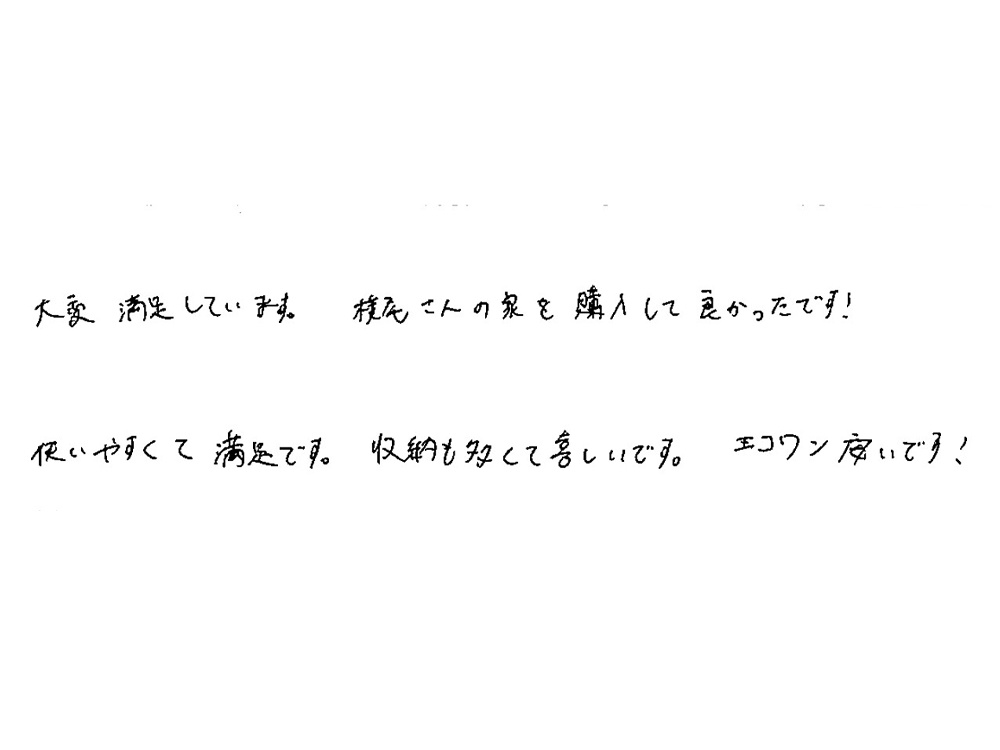 大変 満足しています。 横尾さんの家を購入して良かったです!
使いやすくて満足です。 収納も多くて喜しいです。 エコワン安いです!